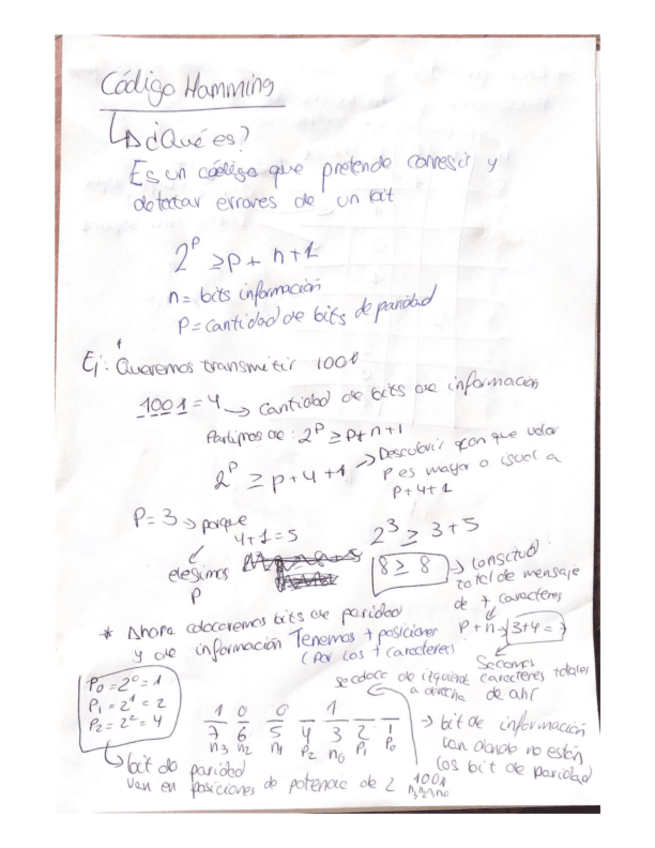 Código Hamming
¿Qué es?
Es un código que pretende corregir y
detectar errores de un bit
2^P ≥ P + n + 1
n = bits información
P = cantidad de bits de paridad
Ej: Queremos transmitir 1001
1001 = 4 → cantidad de bits de información
Partimos de: 2^P ≥ P + n + 1
2^P ≥ P + 4 + 1 → Descubrir con que valor
P es mayor o igual a
P + 4 + 1
P = 3 → porque
4 + 1 = 5
2^3 ≥ 3 + 5
elegimos
P
8 ≥ 8 → Longitud
total de mensaje
de 7 caracteres
P + n → 3 + 4 = 7
Sacamos
caracteres totales
de ahí
* Ahora colocaremos bits de paridad
y de información Tenemos 7 posiciones
(Por los 7 caracteres)
se coloca de izquierda
a derecha
P0 = 2^0 = 1
P1 = 2^1 = 2
P2 = 2^2 = 4
1 0 0 1
7 6 5 4 3 2 1
n3 n2 n1 P2 n0 P1 P0
→ bit de información
van donde no estén
los bit de paridad
bit de paridad
van en posiciones de potencia de 2
1001
n3n2n1n0